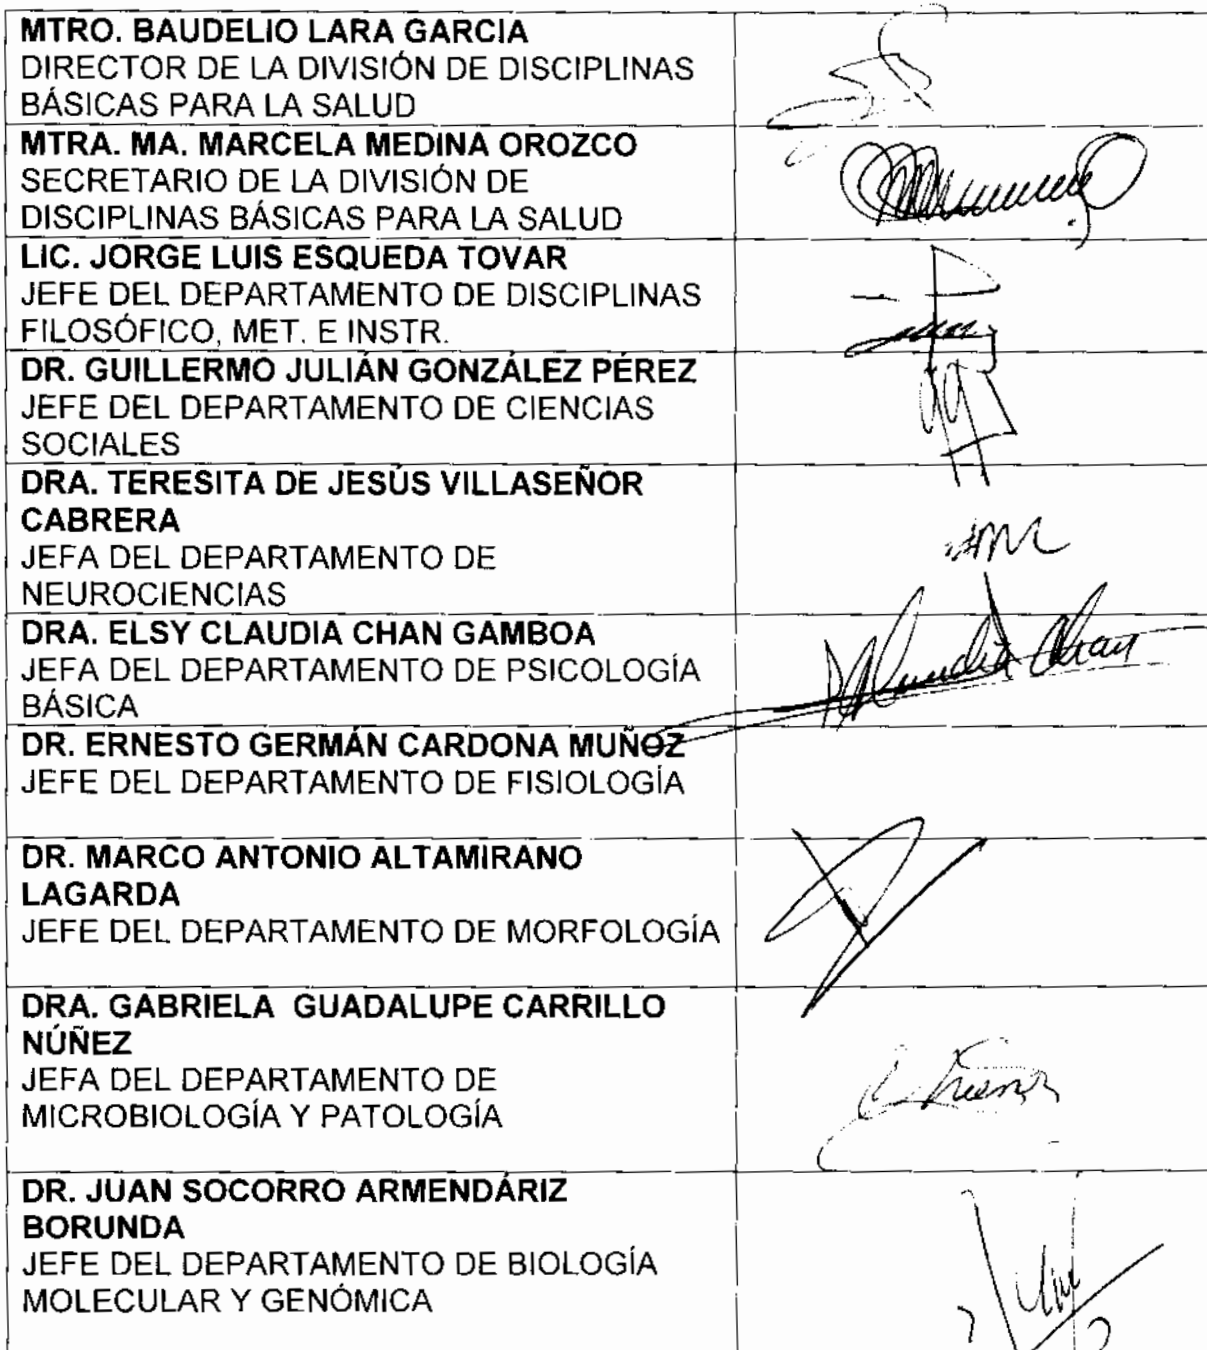 MTRO. BAUDELIO LARA GARCIA
DIRECTOR DE LA DIVISIÓN DE DISCIPLINAS
BÁSICAS PARA LA SALUD
MTRA. MA. MARCELA MEDINA OROZCO
SECRETARIO DE LA DIVISIÓN DE
DISCIPLINAS BÁSICAS PARA LA SALUD
LIC. JORGE LUIS ESQUEDA TOVAR
JEFE DEL DEPARTAMENTO DE DISCIPLINAS
FILOSÓFICO, MET. E INSTR.
DR. GUILLERMO JULIÁN GONZÁLEZ PÉREZ
JEFE DEL DEPARTAMENTO DE CIENCIAS
SOCIALES
DRA. TERESITA DE JESÚS VILLASEÑOR
CABRERA
JEFA DEL DEPARTAMENTO DE
NEUROCIENCIAS
DRA. ELSY CLAUDIA CHAN GAMBOA
JEFA DEL DEPARTAMENTO DE PSICOLOGÍA
BÁSICA
Claudia Chan
DR. ERNESTO GERMÁN CARDONA MUÑOZ
JEFE DEL DEPARTAMENTO DE FISIOLOGÍA
DR. MARCO ANTONIO ALTAMIRANO
LAGARDA
JEFE DEL DEPARTAMENTO DE MORFOLOGÍA
DRA. GABRIELA GUADALUPE CARRILLO
NÚÑEZ
JEFA DEL DEPARTAMENTO DE
MICROBIOLOGÍA Y PATOLOGÍA
DR. JUAN SOCORRO ARMENDÁRIZ
BORUNDA
JEFE DEL DEPARTAMENTO DE BIOLOGÍA
MOLECULAR Y GENÓMICA